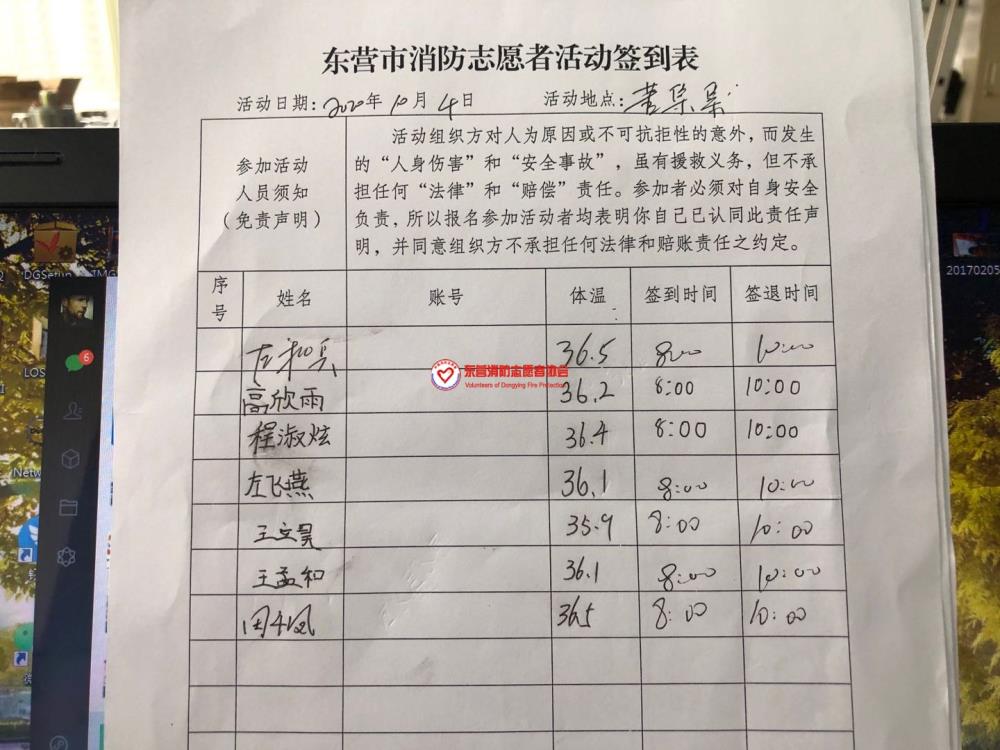 东营市消防志愿者活动签到表
活动日期：2020年10月4日 活动地点：
参加活动
人员须知
（免责声明）
活动组织方对人为原因或不可抗拒性的意外，而发生
的“人身伤害”和“安全事故”，虽有援救义务，但不承
担任何“法律”和“赔偿”责任。参加者必须对自身安全
负责，所以报名参加活动者均表明你自己已认同此责任声
明，并同意组织方不承担任何法律和赔账责任之约定。
序号 姓名 账号 体温 签到时间 签退时间
36.5 8:00 10:00
东营消防志愿者协会
Volunteers of Dongying Fire Protection
高欣雨 36.2 8:00 10:00
程淑炫 36.4 8:00 10:00
左飞燕 36.1 8:00 10:00
王文昊 35.9 8:00 10:00
王孟和 36.1 8:00 10:00
36.5 8:00 10:00
DGSetup
IMG
20170205
6
LOS
Netw